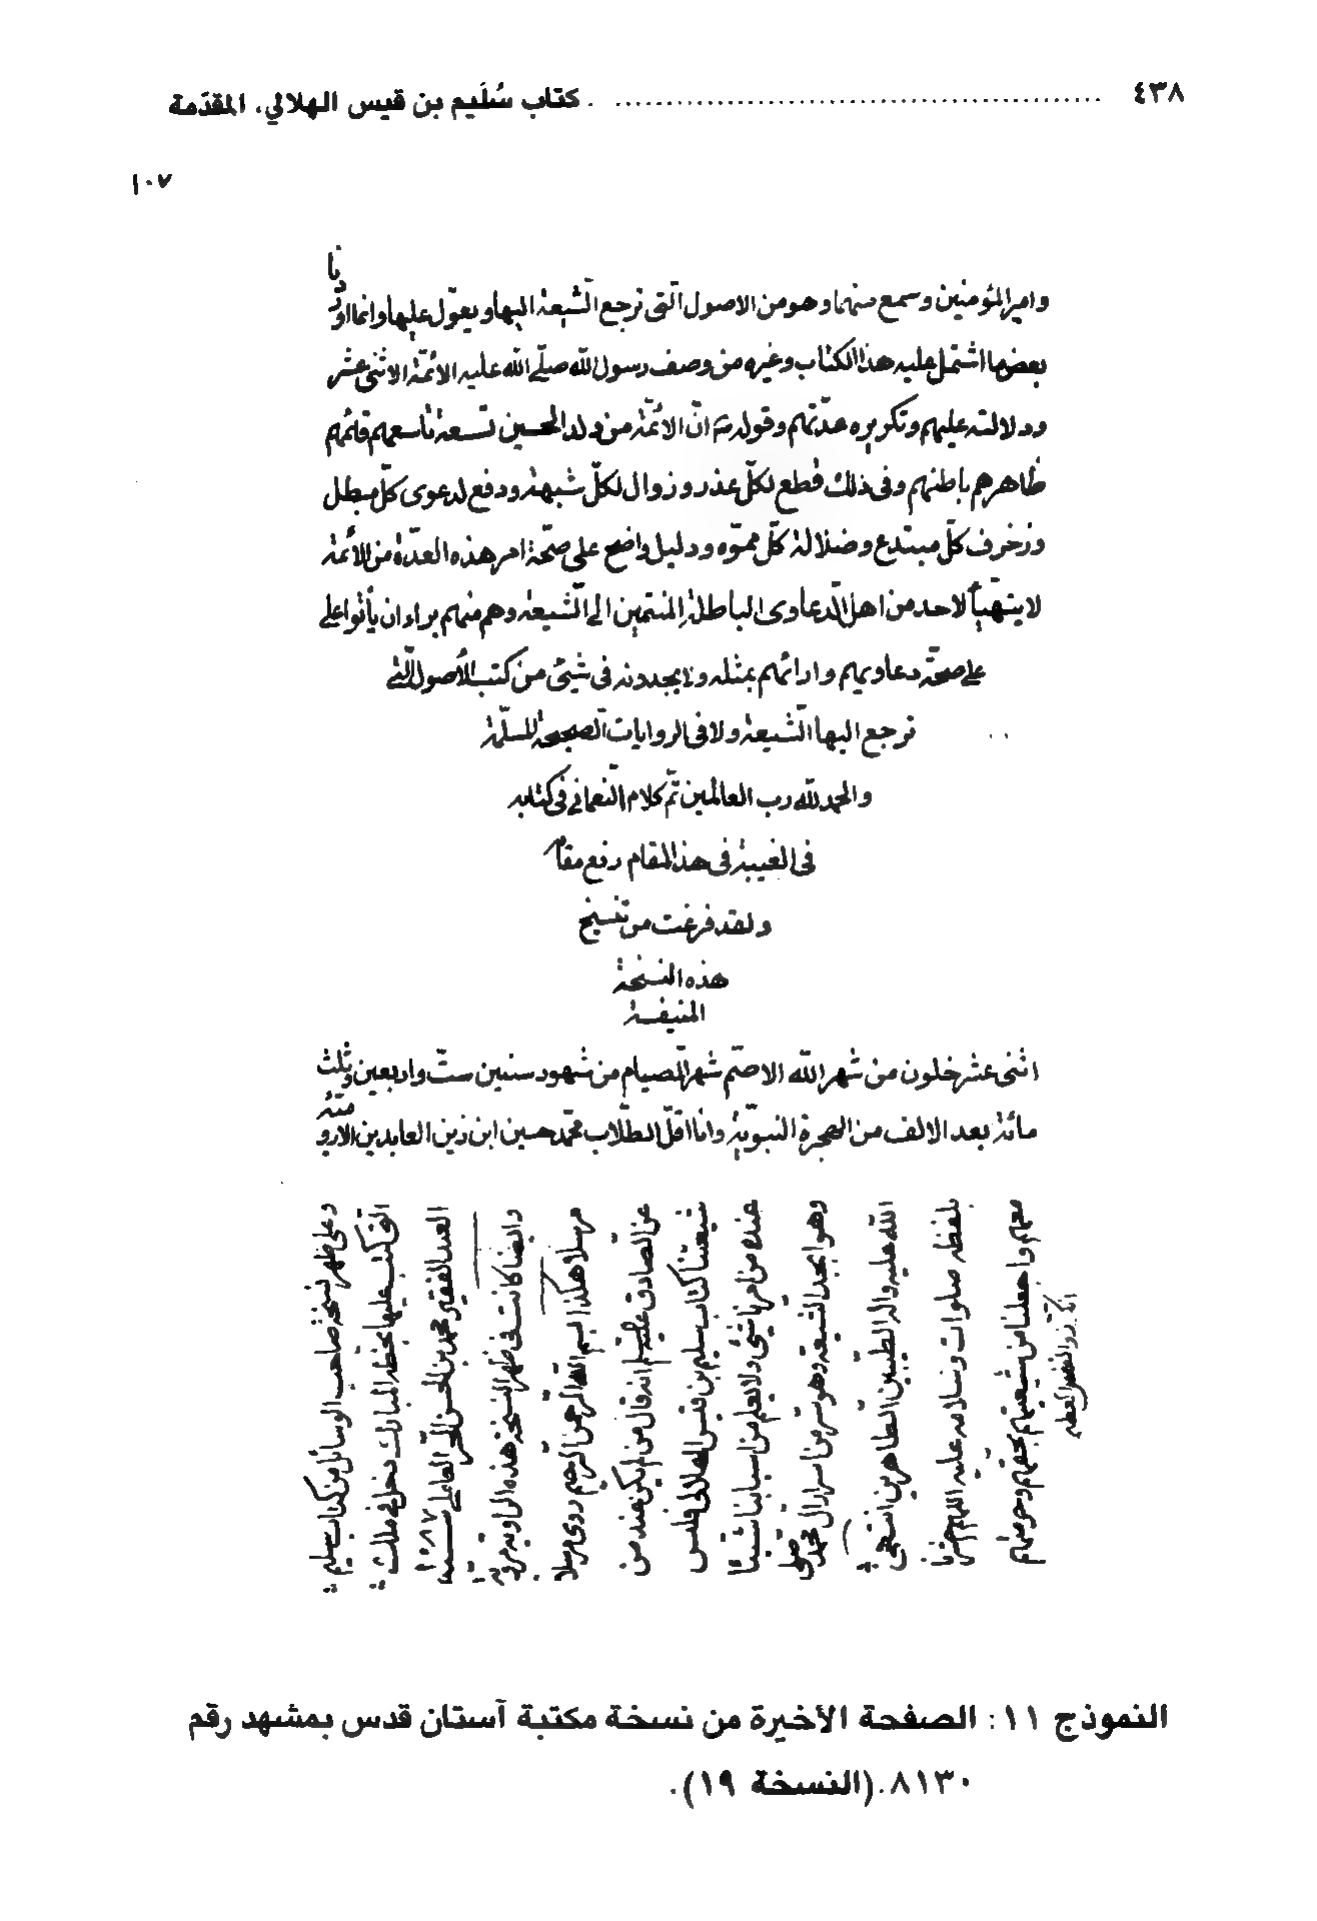 ٤٣٨ ........ كتاب سُلَيم بن قيس الهلالي، المقدّمة
١٠٧
وامير المؤمنين وسمع منهما وهو من الاصول الّتى ترجع الشّيعة اليها ويعوّل عليها وانما اوردنا
بعض ما اشتمل عليه هذا الكتاب وغيره من وصف رسول اللّه صلّى اللّه عليه الائمّة الاثنى عشر
ودلالته عليهم وتكريره عدّتهم وقوله انّ الائمّة من ولد الحسين تسعة تاسعهم قائمهم
ظاهرهم باطنهم وفى ذلك قطع لكلّ عذر وزوال لكلّ شبهة ودفع لدعوى كلّ مبطل
وزخرف كلّ مبتدع وضلالة كلّ مموّه ودليل واضح على صحّة امر هذه العدّة من الائمّة
لا يتهيّأ لاحد من اهل الدّعاوى الباطلة المنتمين الى الشّيعة وهم منهم براء ان يأتوا على
على صحّة دعاويهم وارائهم بمثله ولا يجدونه فى شيئ من كتب الأصول الّتى
ترجع اليها الشّيعة ولا فى الروايات الصّحيحة المسلّمة
والحمد للّه رب العالمين تمّ كلام النّعمانى فى كتابه
فى الغيبة فى هذا المقام رفع مقامه
ولقد فرغت من تنسيخ
هذه النسخة
المنيفة
اثنى عشر خلون من شهر اللّه الاصمّ شهر الصّيام من شهود سنين ستّ واربعين وثلث
مائة بعد الالف من الهجرة النبويّة وانا اقلّ الطّلاب محمّد حسين ابن زين العابدين الارو
وعلى ظهر نسخة صاحب الوسائل من كتاب سليم
التى كتب عليها بخطه المبارك دخل فى ملك
العبد الفقير محمد بن الحسن الحرّ العاملى سنة ١٠٨٧
وايضا كانت فى ظهر النسخة هذه الرواية مروية
مرسلا هكذا بسم اللّه الرحمن الرّحيم روى مرسلا
عن الصّادق انه قال من لم يكن عنده من
شيعتنا كتاب سليم بن قيس الهلالى فليس
عنده من امرنا شئ ولا يعلم من اسبابنا شيئا
وهو ابجد الشيعة وهو سرّ من اسرار ال محمّد صلّى
اللّه عليه واله الطيبين الطّاهرين انتهى
بلفظه صلوات وسلامه عليه اللّهم احشرنا
معهم واجعلنا من شيعتهم بحقهم وحرمتهم
النموذج ١١: الصفحة الأخيرة من نسخة مكتبة آستان قدس بمشهد رقم
٨١٣٠. (النسخة ١٩).